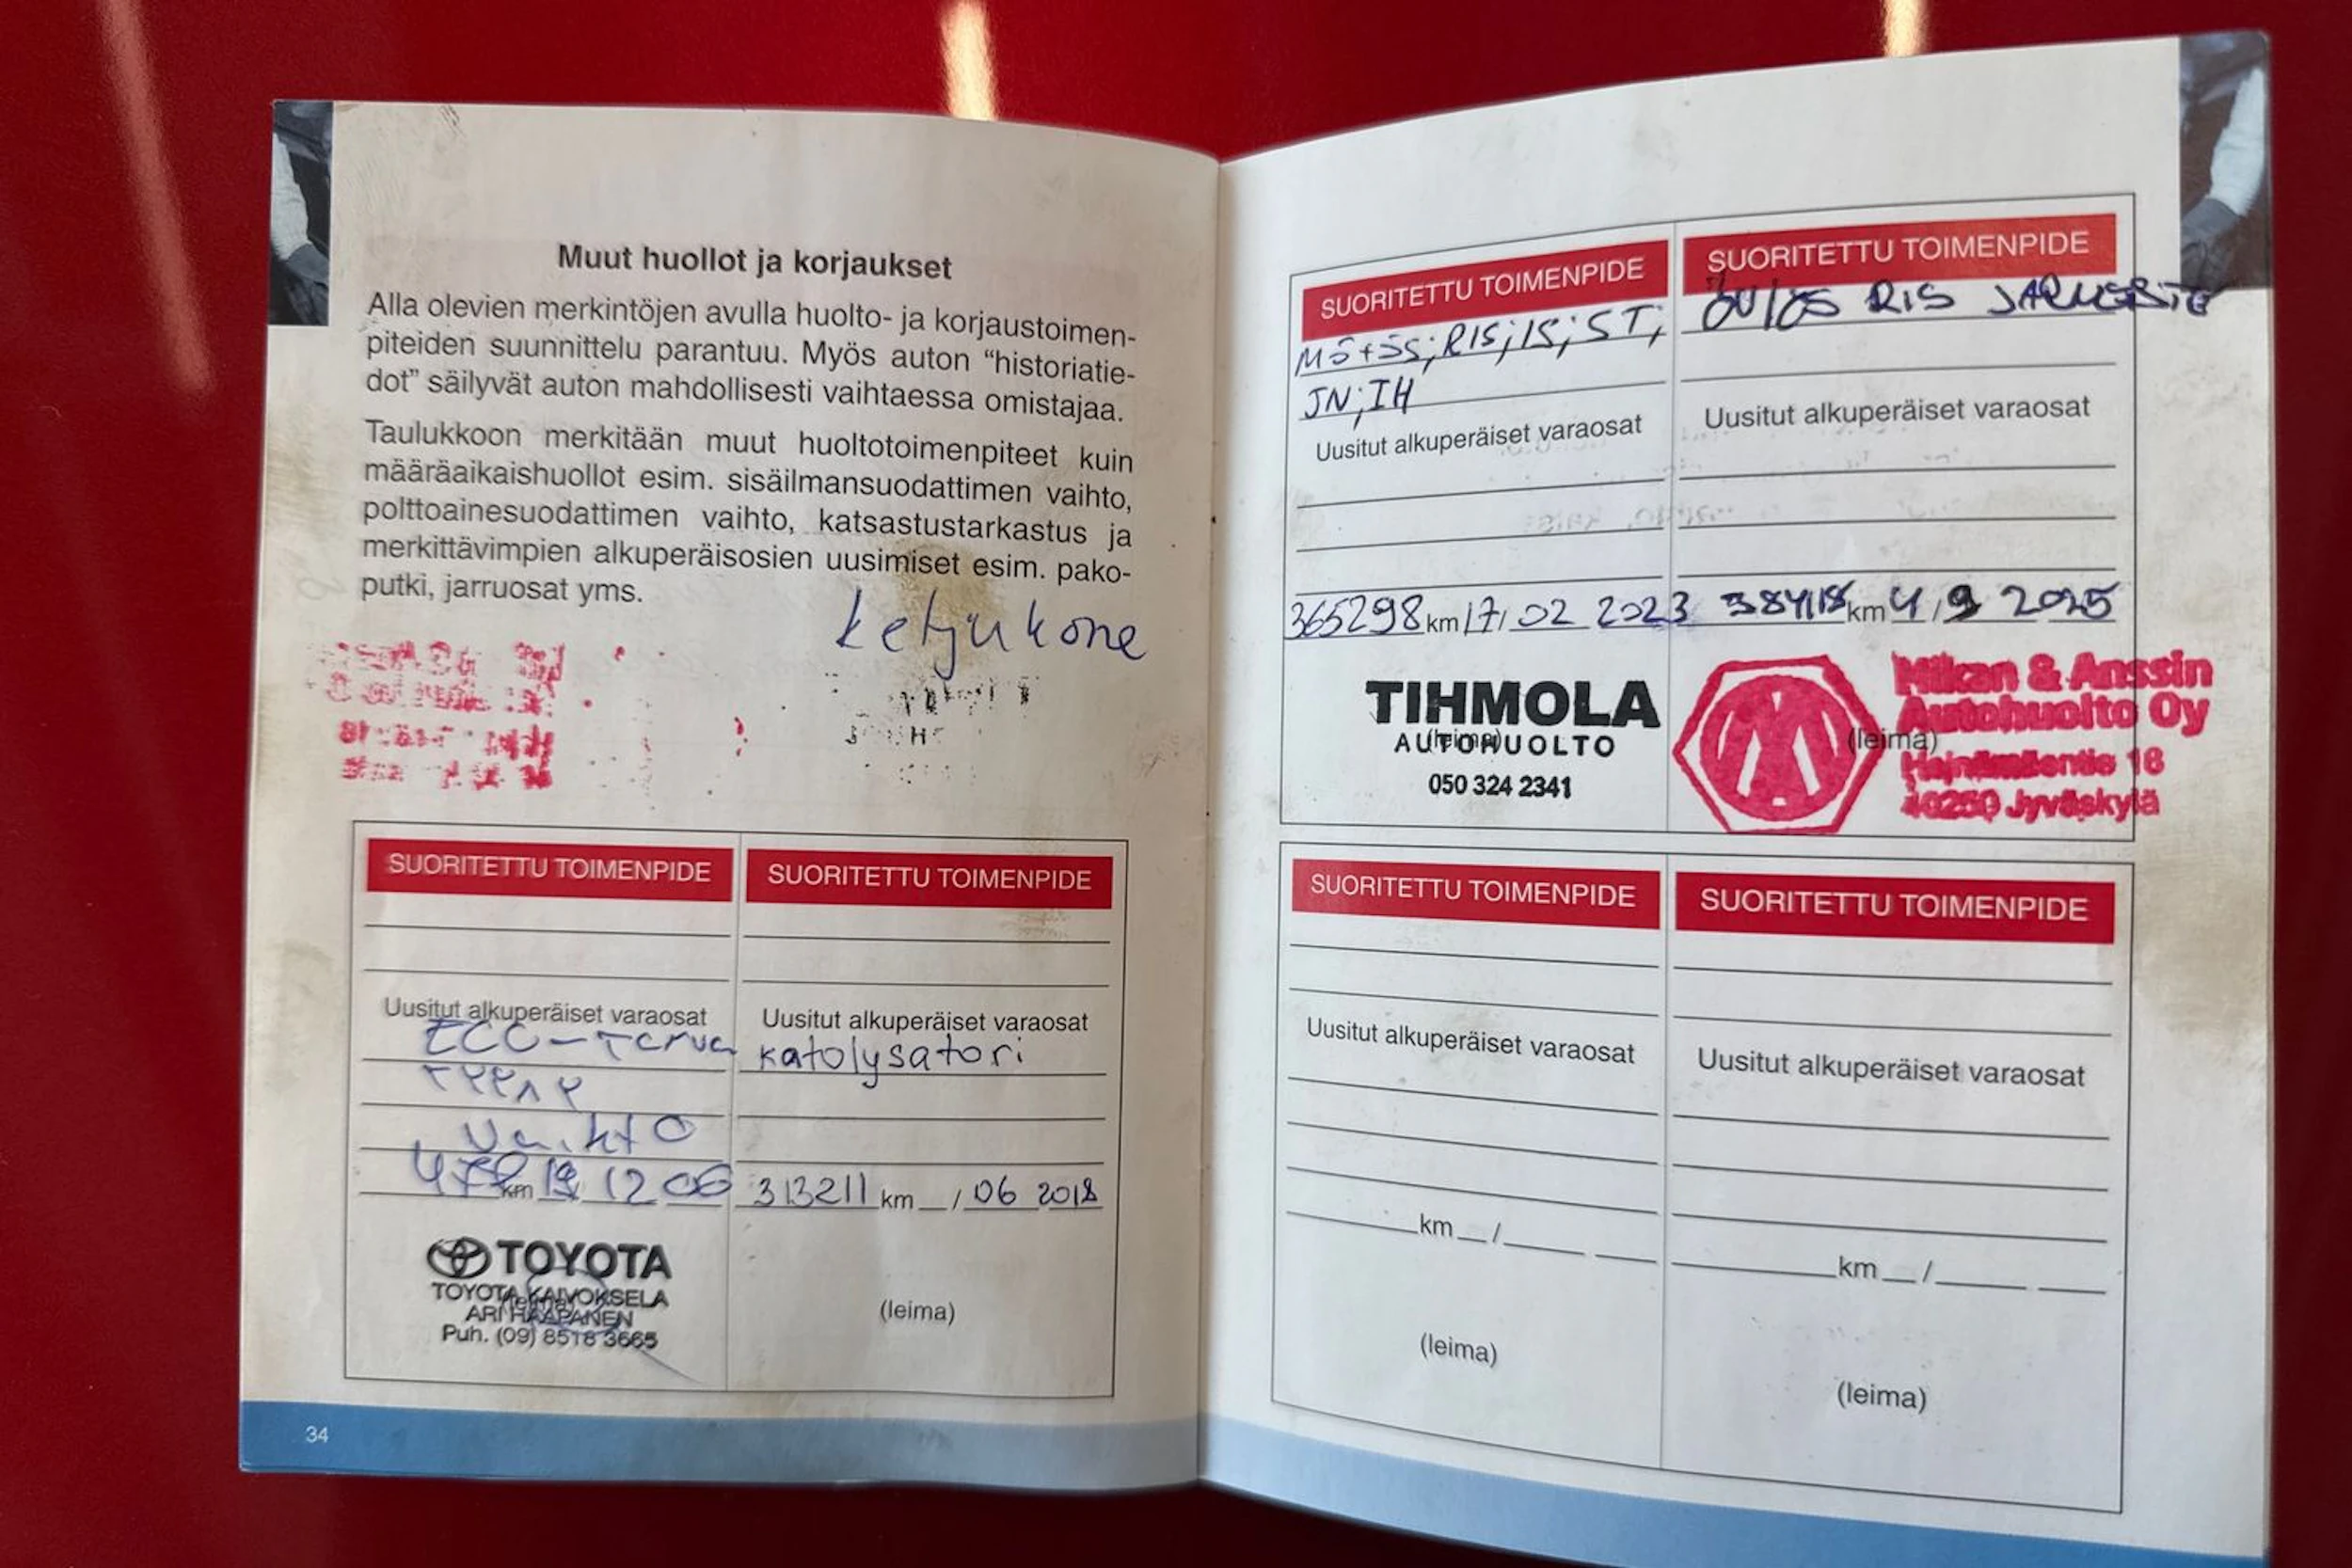 Muut huollot ja korjaukset
Alla olevien merkintöjen avulla huolto- ja korjaustoimen-
piteiden suunnittelu parantuu. Myös auton “historiatie-
dot” säilyvät auton mahdollisesti vaihtaessa omistajaa.
Taulukkoon merkitään muut huoltotoimenpiteet kuin
määräaikaishuollot esim. sisäilmansuodattimen vaihto,
polttoainesuodattimen vaihto, katsastustarkastus ja
merkittävimpien alkuperäisosien uusimiset esim. pako-
putki, jarruosat yms.
ketjukone
SUORITETTU TOIMENPIDE
Uusitut alkuperäiset varaosat
vaihto
km 12 06
TOYOTA
TOYOTA KAIVOKSELA
ARI HAAPANEN
Puh. (09) 8518 3665
(leima)
SUORITETTU TOIMENPIDE
Uusitut alkuperäiset varaosat
katolysatori
313211 km __ / 06 2018
(leima)
34
SUORITETTU TOIMENPIDE
MÖ+ÖS; RIS; IS; ST;
JN; IH
Uusitut alkuperäiset varaosat
365298 km 17/ 02 2023
TIHMOLA
AUTOHUOLTO
(leima)
050 324 2341
SUORITETTU TOIMENPIDE
RIS
Uusitut alkuperäiset varaosat
km 4/9 2025
Mikan & Anssin
Autohuolto Oy
(leima)
18
40250 Jyväskylä
SUORITETTU TOIMENPIDE
Uusitut alkuperäiset varaosat
km __ /
(leima)
SUORITETTU TOIMENPIDE
Uusitut alkuperäiset varaosat
km __ /
(leima)